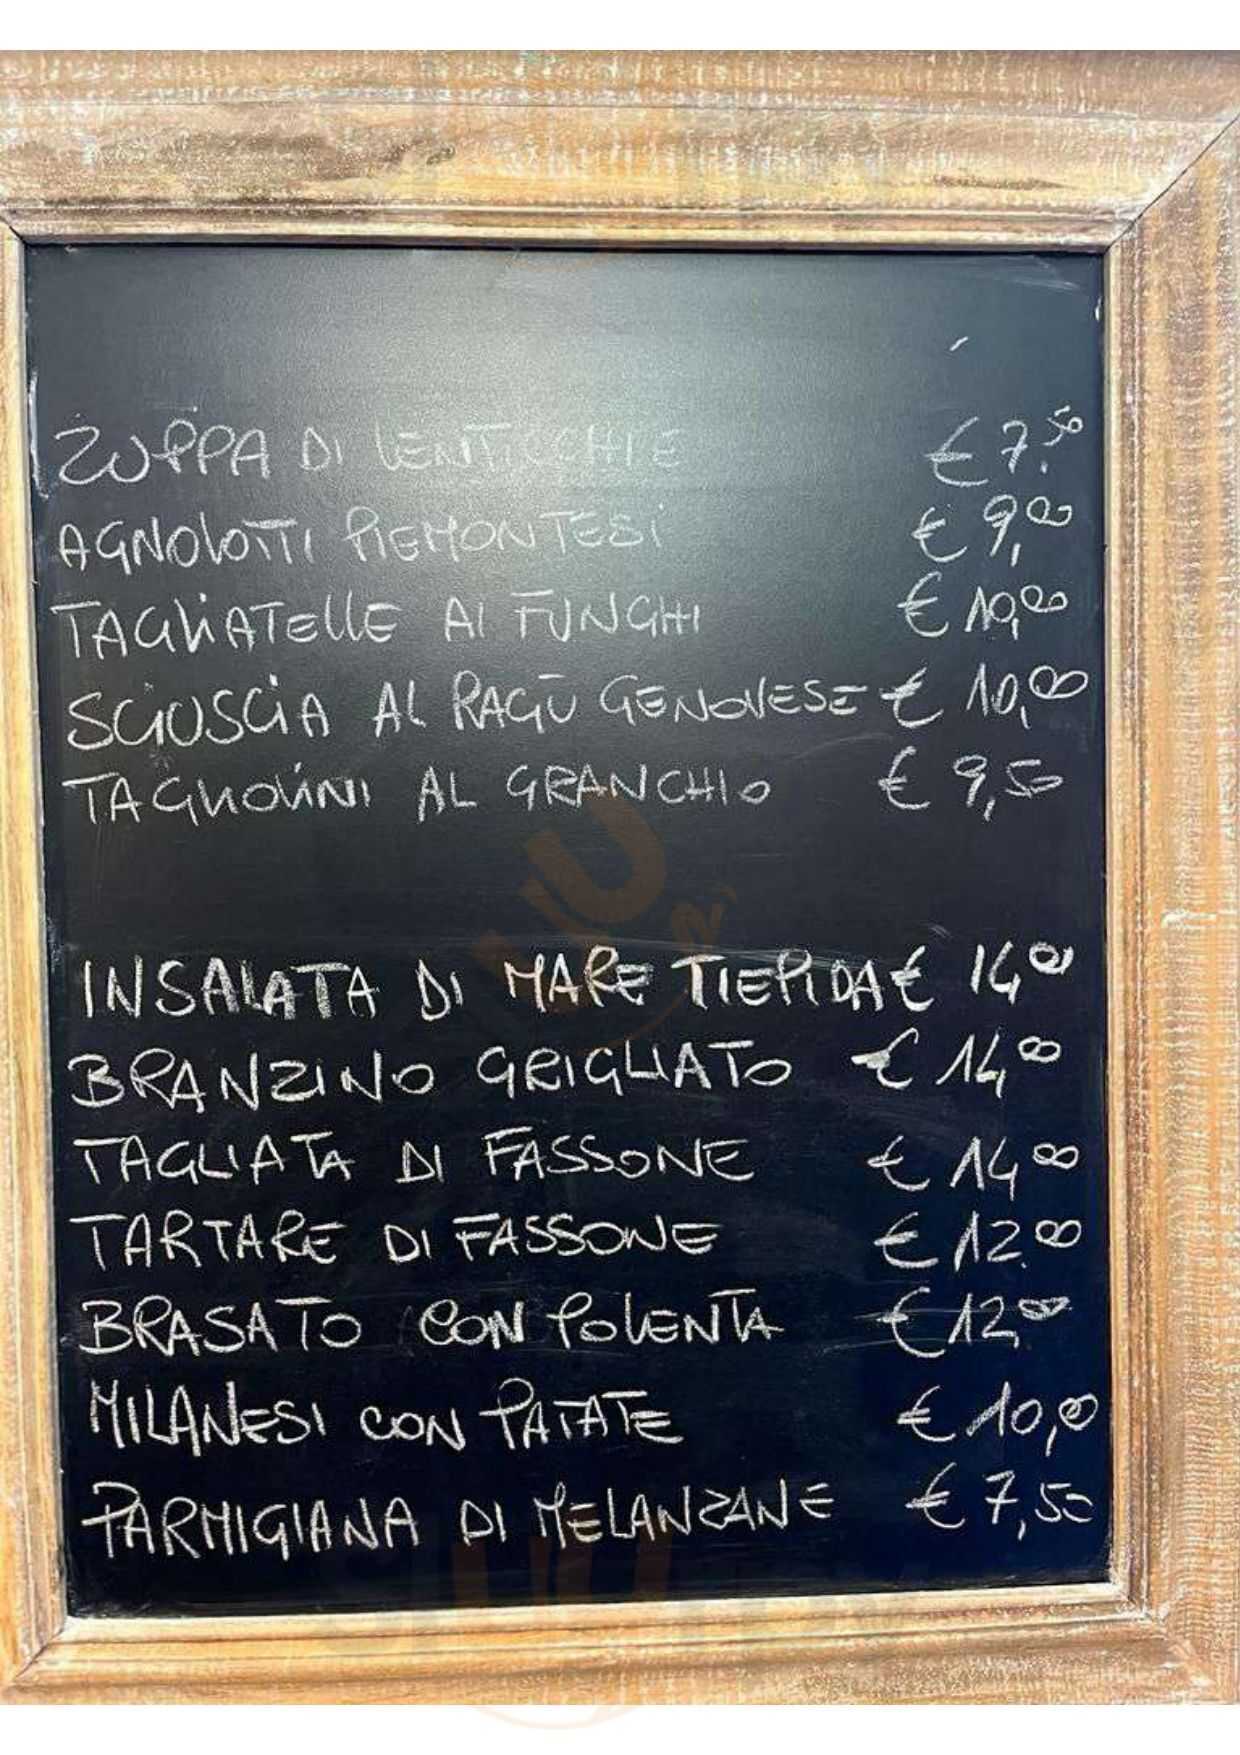 ZUPPA DI LENTICCHIE € 7.50
AGNOLOTTI PIEMONTESI € 9,00
TAGLIATELLE AI FUNGHI € 10,00
SCIUSCIA AL RAGÙ GENOVESE € 10,00
TAGLIOLINI AL GRANCHIO € 9,50
INSALATA DI MARE TIEPIDA € 14,00
BRANZINO GRIGLIATO € 14,00
TAGLIATA DI FASSONE € 14,00
TARTARE DI FASSONE € 12.00
BRASATO CON POLENTA € 12,00
MILANESI CON PATATE € 10,00
PARMIGIANA DI MELANZANE € 7,50